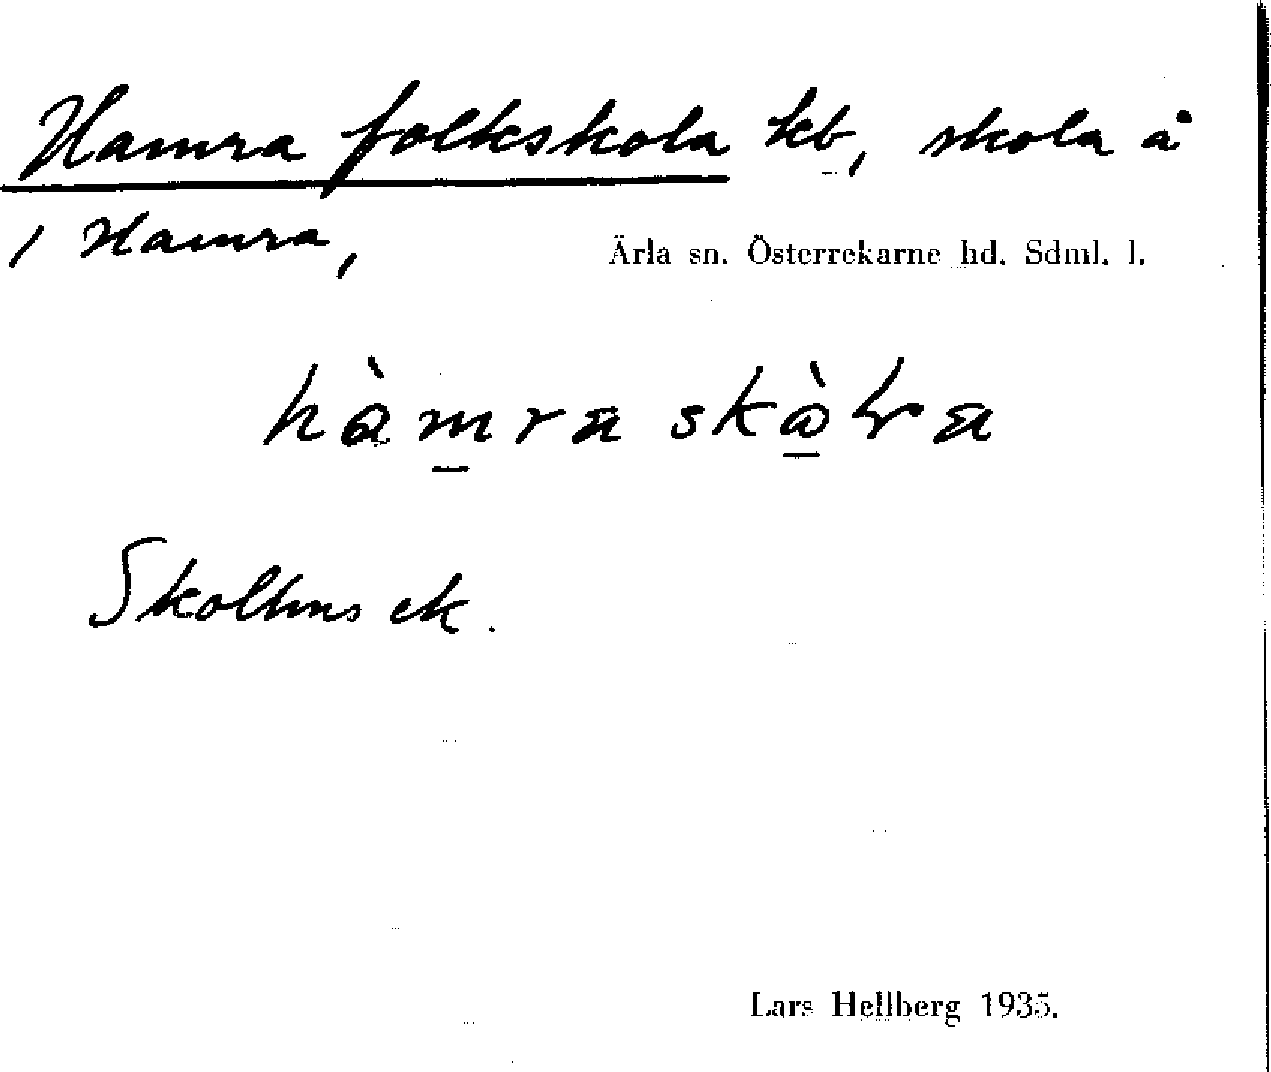 Hamra folkskola kb, skola å
/ Hamra,
Ärla sn. Österrekarne hd. Sdml. l.
Skolhus ek.
Lars Hellberg 1935.